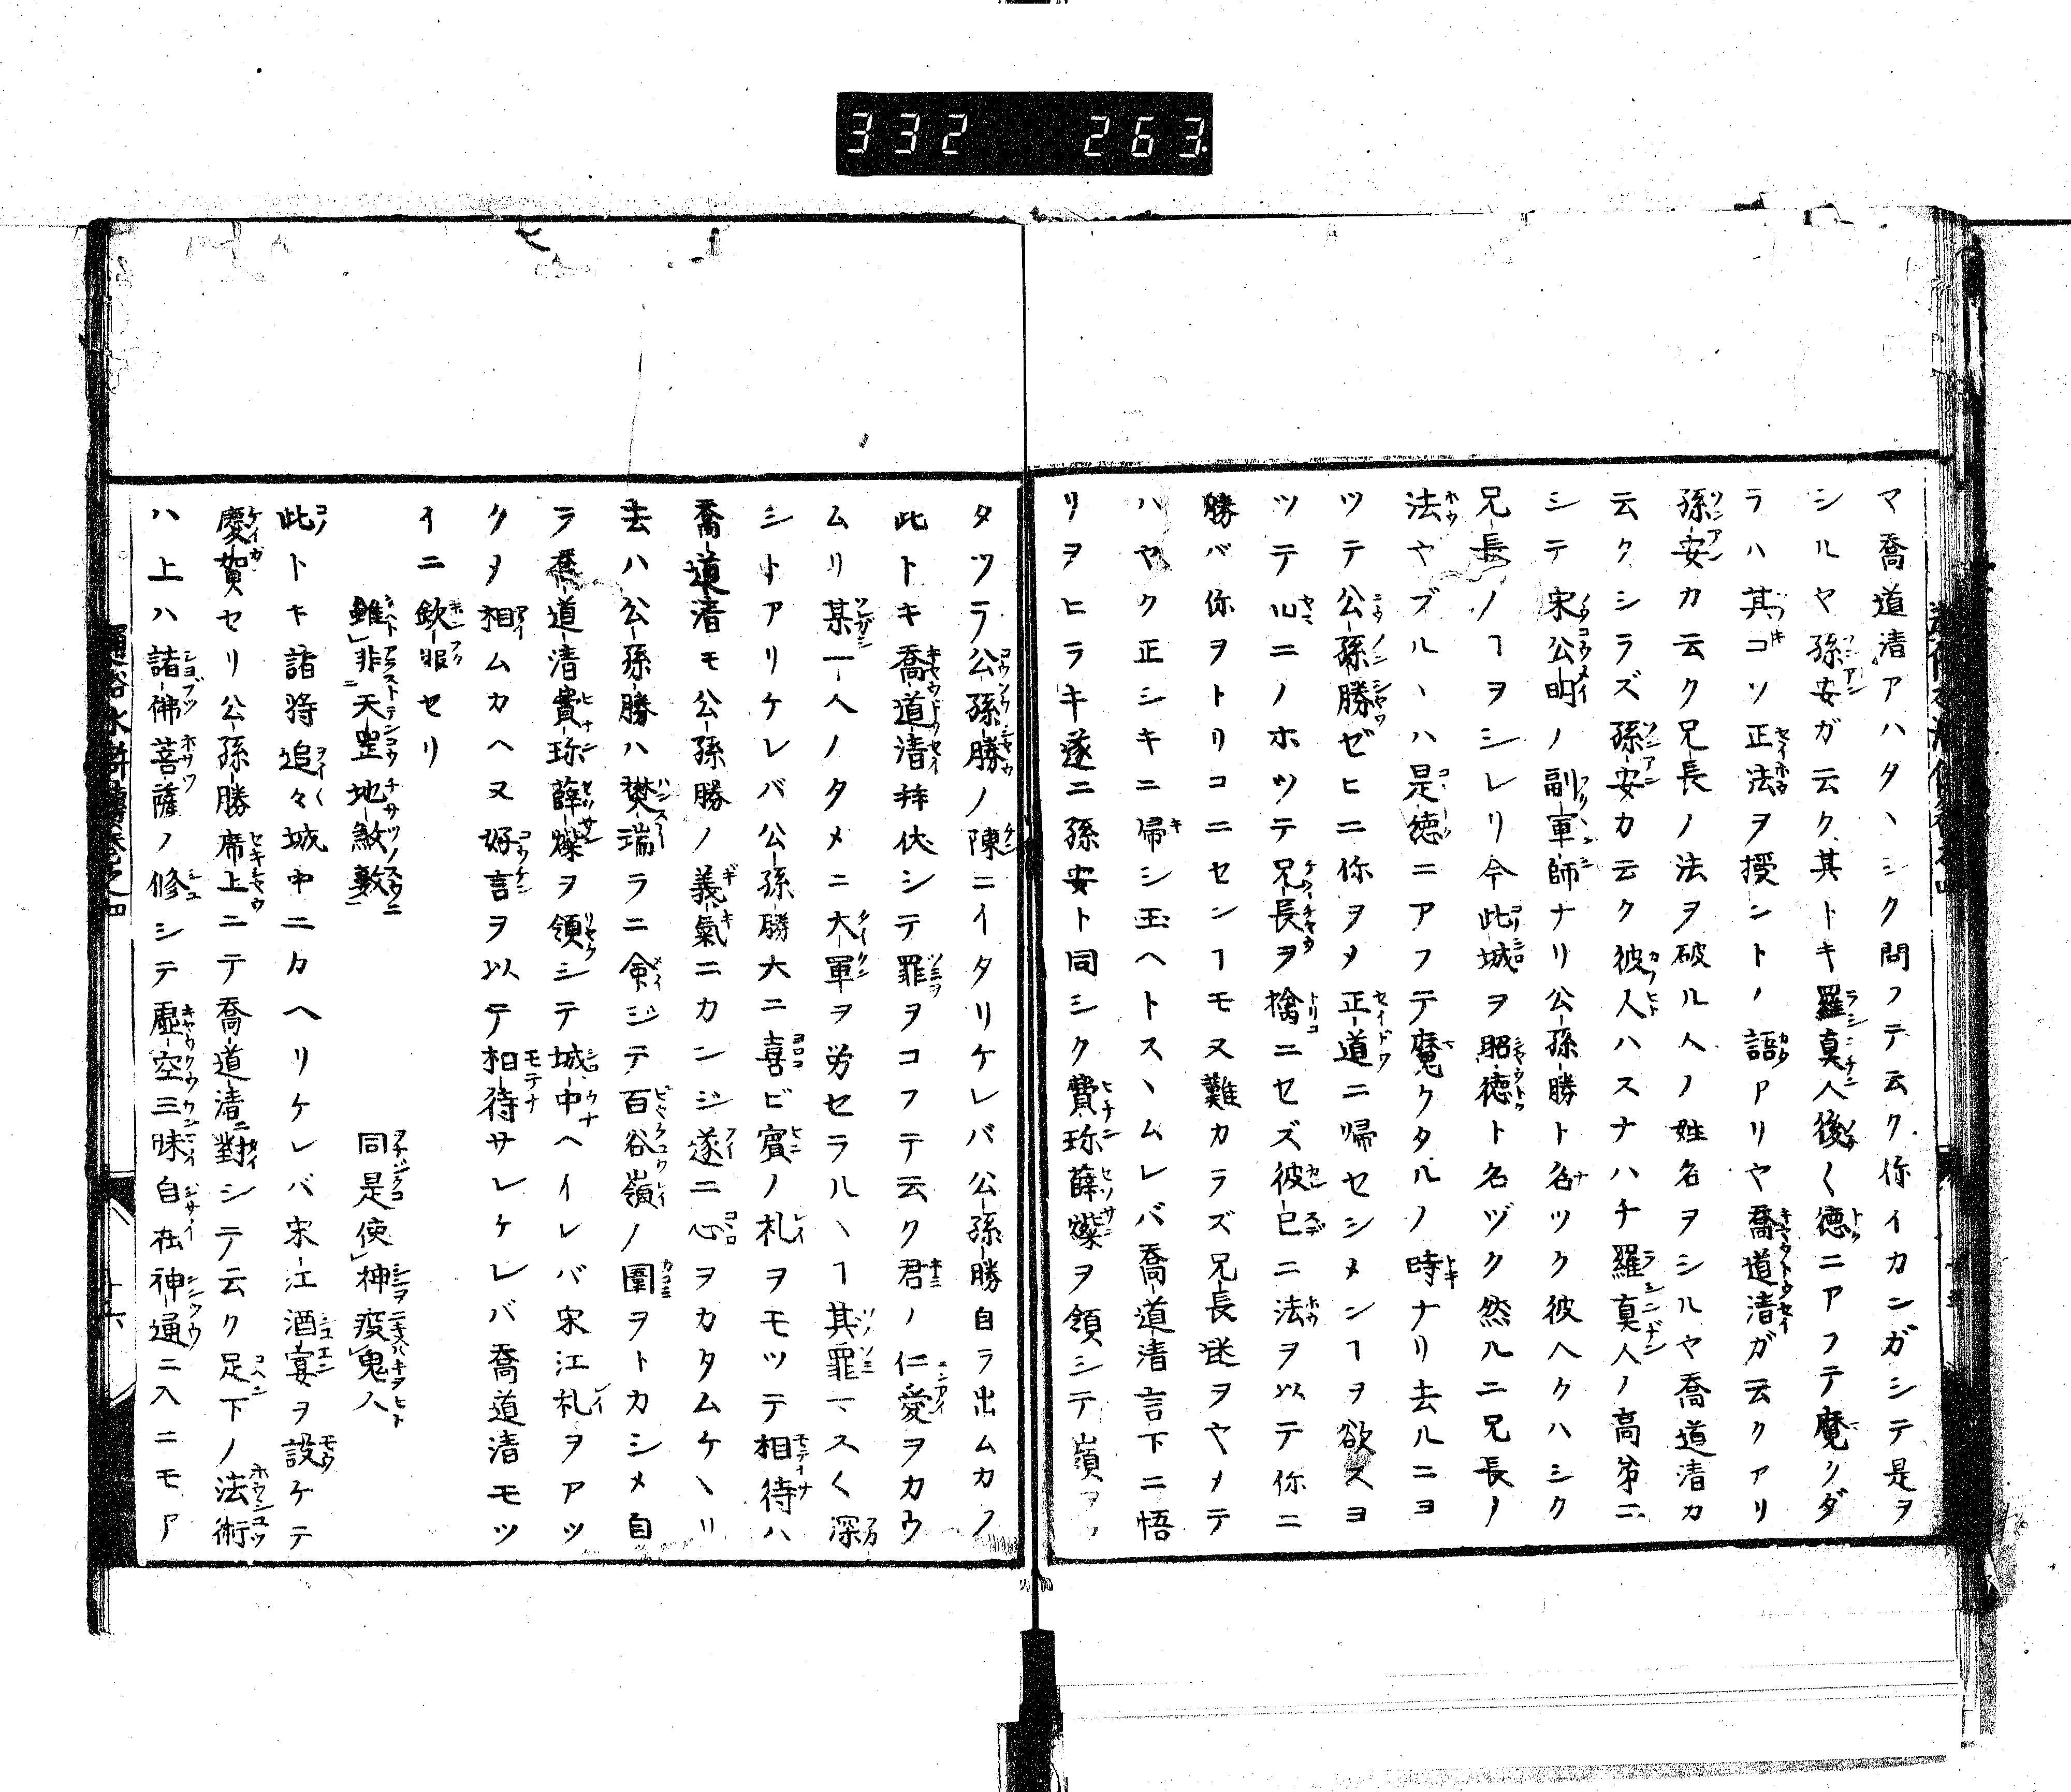 332 263
マ喬道清アハタヽシク問フテ云ク你イカンガシテ是ヲ
シルヤ孫安ガ云ク其トキ羅真人後〱徳ニアフテ魔クダ
ラハ其コソ正法ヲ授ントノ語アリヤ喬道清ガ云クアリ
孫安カ云ク兄長ノ法ヲ破ル人ノ姓名ヲシルヤ喬道清カ
云クシラズ孫安カ云ク彼人ハスナハチ羅真人ノ高弟ニ
シテ宋公明ノ副軍師ナリ公孫勝ト名ツク彼ヘクハシク
兄長ノヿヲシレリ今此城ヲ昭徳ト名ヅク然ルニ兄長ノ
法ヤブルヽハ是徳ニアフテ魔クタルノ時ナリ去ルニヨ
ツテ公孫勝ゼヒニ你ヲメ正道ニ帰セシメンヿヲ欲スヨ
ツテ山ニノホツテ兄長ヲ擒ニセズ彼已ニ法ヲ以テ你ニ
勝バ你ヲトリコニセンヿモ又難カラズ兄長迷ヲヤメテ
ハヤク正シキニ帰シ玉ヘトスヽムレバ喬道清言下ニ悟
リヲヒラキ遂ニ孫安ト同シク費珍薛燦ヲ領シテ嶺ヲ
タツラ公孫勝ノ陳ニイタリケレバ公孫勝自ラ出ムカフ
此トキ喬道清拝伏シテ罪ヲコフテ云ク君ノ仁愛ヲカウ
ムリ某一人ノタメニ大軍ヲ労セラルヽヿ其罪マスく深
シトアリケレバ公孫勝大ニ喜ビ賓ノ礼ヲモツテ相待ハ
喬道清モ公孫勝ノ義氣ニカンジ遂ニ心ヲカタムケヽリ
去ハ公孫勝ハ樊瑞ラニ命ジテ百谷嶺ノ圍ヲトカシメ自
ラ喬道清費珍薛燦ヲ領シテ城中ヘイレバ宋江礼ヲアツ
クメ相ムカヘ又好言ヲ以テ相待サレケレバ喬道清モツ
イニ欽服セリ
雖非天罡地煞數 同是使神疫鬼人
此トキ諸將追々城中ニカヘリケレバ宋江酒宴ヲ設ケテ
慶賀セリ公孫勝席上ニテ喬道清ニ對シテ云ク足下ノ法術
ハ上ハ諸佛菩薩ノ修シテ虚空三昧自在神通ニ入ニモア
通俗水滸傳巻之四
十六